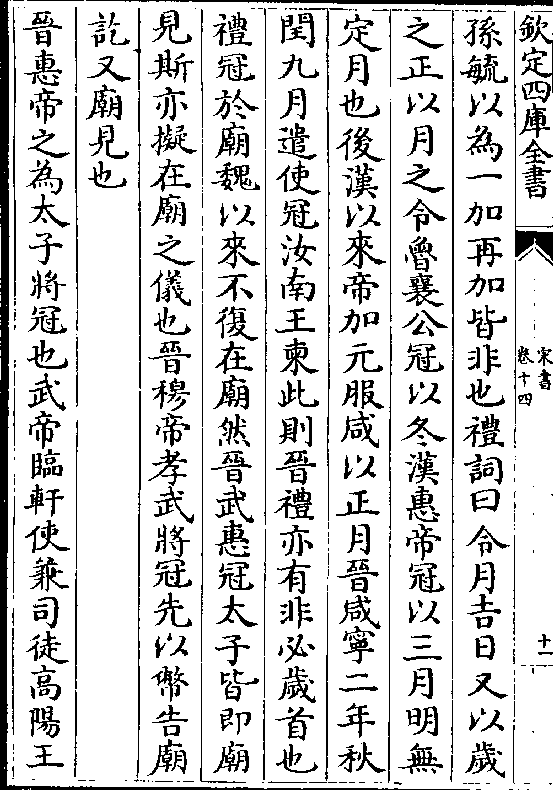 欽定四庫全書
宋書
卷十四
十一
孫毓以為一加再加皆非也禮詞曰令月吉日又以歲
之正以月之令魯襄公冠以冬漢惠帝冠以三月明無
定月也後漢以來帝加元服咸以正月晉咸寧二年秋
閏九月遣使冠汝南王柬此則晉禮亦有非必歲首也
禮冠於廟魏以來不復在廟然晉武惠冠太子皆即廟
見斯亦擬在廟之儀也晉穆帝孝武將冠先以幣告廟
訖又廟見也
晉惠帝之為太子將冠也武帝臨軒使兼司徒高陽王